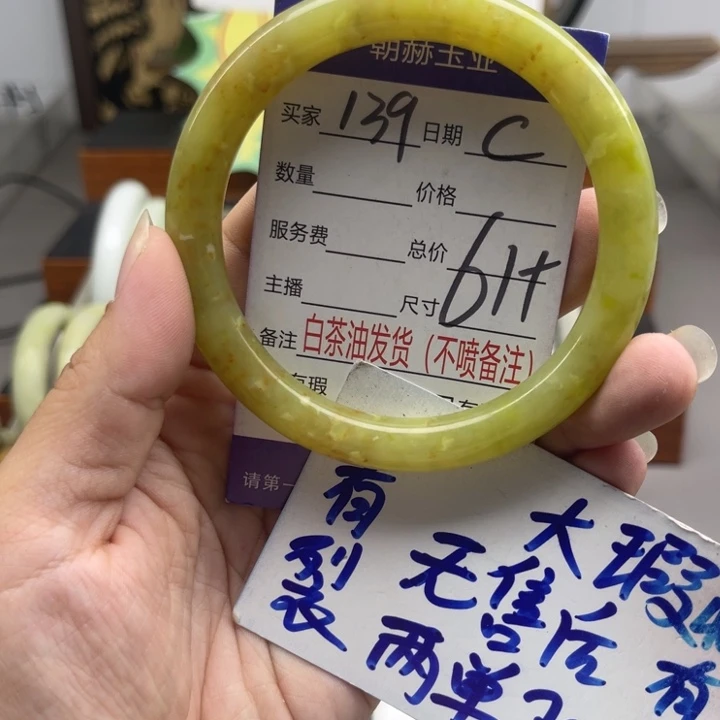 朝赫玉业
买家 139 日期 C
数量 价格
服务费 总价
主播 尺寸 61+
备注 白茶油发货（不喷备注）
有瑕
请第一
有裂
大瑕
无售后
有
两单